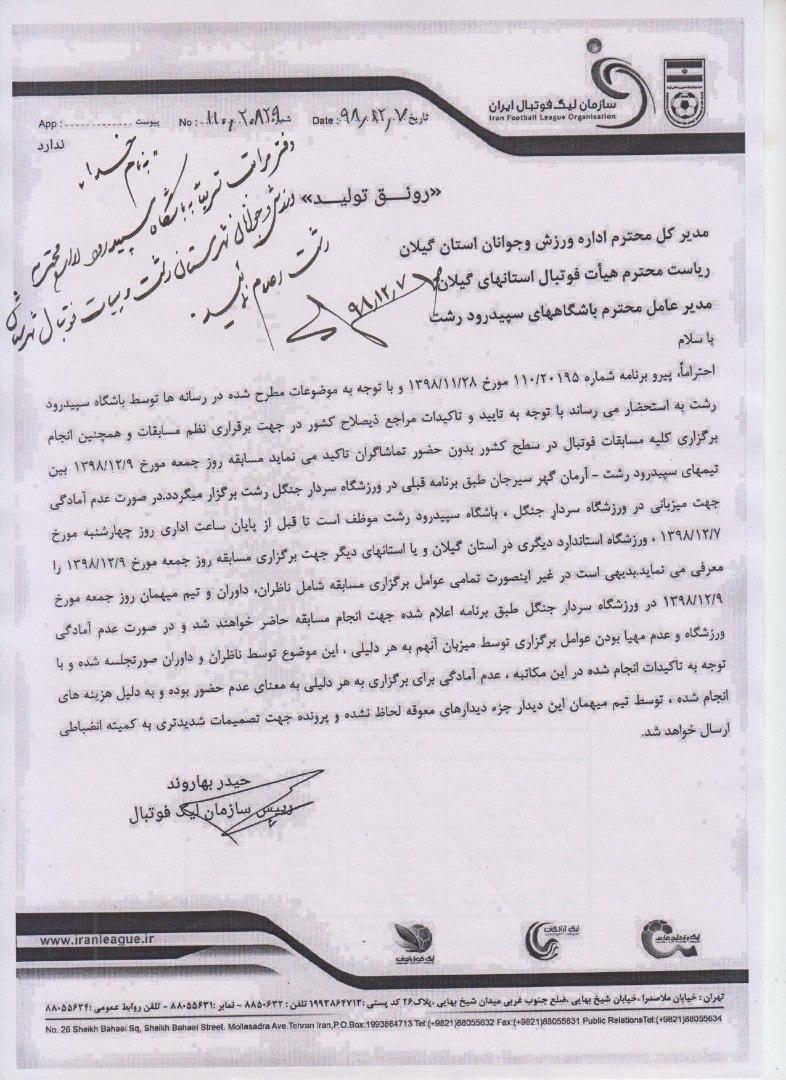 سازمان لیگ فوتبال ایران
Iran Football League Organisation
تاریخ Date : ۹۸٫۱۲٫۷
شماره No : ۱۱۰٫۲۰۸۲۹
پیوست App : ..............
ندارد
«رونـــق تولیـــد»
"به نام خدا"
دفتر مراتب به باشگاه سپیدرود
ورزش و جوانان شهرستان رشت و هیات فوتبال
رشت اعلام نمائید.
۹۸,۱۲,۷
مدیر کل محترم اداره ورزش وجوانان استان گیلان
ریاست محترم هیأت فوتبال استانهای گیلان
مدیر عامل محترم باشگاههای سپیدرود رشت
با سلام
احتراماً، پیرو برنامه شماره ۱۱۰/۲۰۱۹۵ مورخ ۱۳۹۸/۱۱/۲۸ و با توجه به موضوعات مطرح شده در رسانه ها توسط باشگاه سپیدرود
رشت به استحضار می رساند با توجه به تایید و تاکیدات مراجع ذیصلاح کشور در جهت برقراری نظم مسابقات و همچنین انجام
برگزاری کلیه مسابقات فوتبال در سطح کشور بدون حضور تماشاگران تاکید می نماید مسابقه روز جمعه مورخ ۱۳۹۸/۱۲/۹ بین
تیمهای سپیدرود رشت - آرمان گهر سیرجان طبق برنامه قبلی در ورزشگاه سردار جنگل رشت برگزار میگردد.در صورت عدم آمادگی
جهت میزبانی در ورزشگاه سردار جنگل ، باشگاه سپیدرود رشت موظف است تا قبل از پایان ساعت اداری روز چهارشنبه مورخ
۱۳۹۸/۱۲/۷ ، ورزشگاه استاندارد دیگری در استان گیلان و یا استانهای دیگر جهت برگزاری مسابقه روز جمعه مورخ ۱۳۹۸/۱۲/۹ را
معرفی می نماید.بدیهی است در غیر اینصورت تمامی عوامل برگزاری مسابقه شامل ناظران، داوران و تیم میهمان روز جمعه مورخ
۱۳۹۸/۱۲/۹ در ورزشگاه سردار جنگل طبق برنامه اعلام شده جهت انجام مسابقه حاضر خواهند شد و در صورت عدم آمادگی
ورزشگاه و عدم مهیا بودن عوامل برگزاری توسط میزبان آنهم به هر دلیلی ، این موضوع توسط ناظران و داوران صورتجلسه شده و با
توجه به تاکیدات انجام شده در این مکاتبه ، عدم آمادگی برای برگزاری به هر دلیلی به معنای عدم حضور بوده و به دلیل هزینه های
انجام شده ، توسط تیم میهمان این دیدار جزء دیدارهای معوقه لحاظ نشده و پرونده جهت تصمیمات شدیدتری به کمیته انضباطی
ارسال خواهد شد.
حیدر بهاروند
رییس سازمان لیگ فوتبال
www.iranleague.ir
لیگ آزادگان
تهران : خیابان ملاصدرا ،خیابان شیخ بهایی ،ضلع جنوب غربی میدان شیخ بهایی ،پلاک۲۶ کد پستی :۱۹۹۳۸۶۴۷۱۳ تلفن : ۸۸۵۰۶۳۲ - نمابر :۸۸۰۵۵۶۳۱ - تلفن روابط عمومی :۸۸۰۵۵۶۳۴
No. 26 Sheikh Bahaei Sq, Sheikh Bahaei Street. Mollasadra Ave.Tehran Iran,P.O.Box:1993864713 Tel:(+9821)88055632 Fax:(+9821)88055631 Public RelationsTel:(+9821)88055634